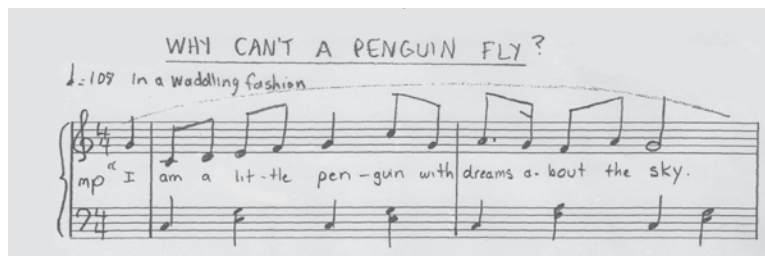 WHY CAN'T A PENGUIN FLY?
♩=108 In a waddling fashion
4 4
mp "I am a lit-tle pen-guin with dreams a-bout the sky.
4 4